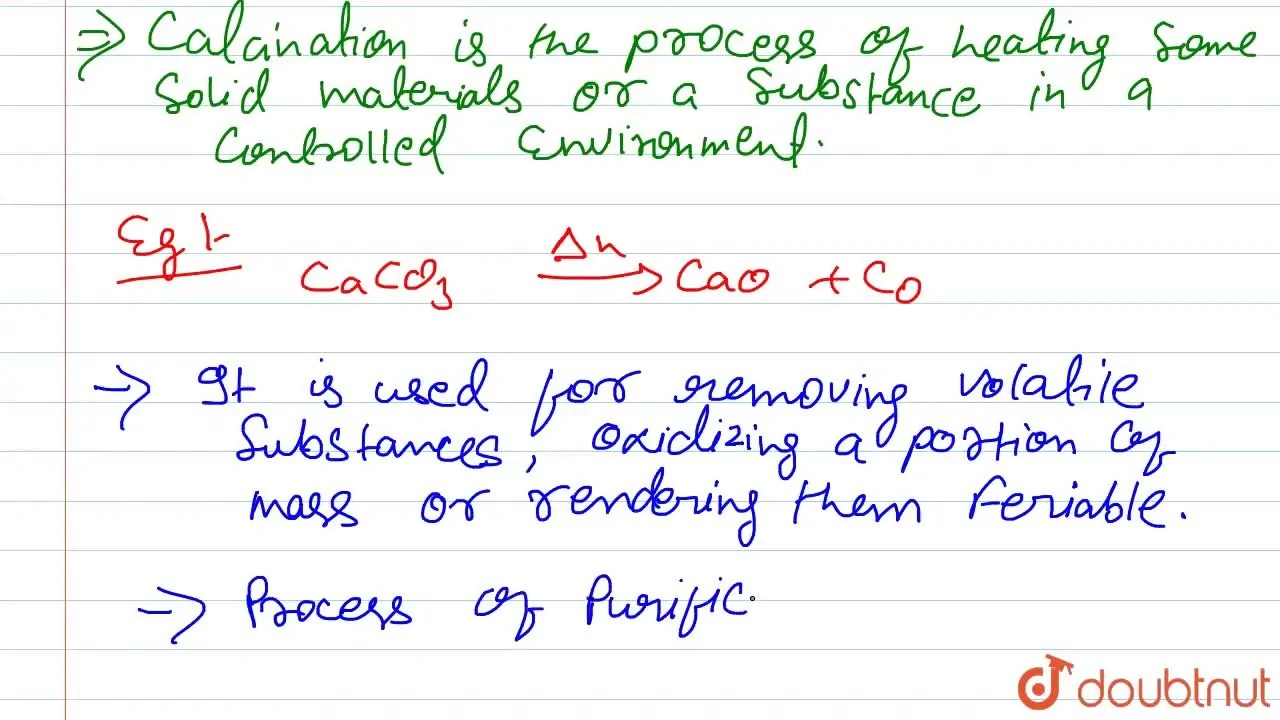 ⇒ Calcination is the process of heating some
solid materials or a substance in a
controlled environment.
Eg :-
CaCO3 Δh → CaO + CO
→ It is used for removing volatile
substances, oxidizing a portion of
mass or rendering them feriable.
→ Process of Purific
doubtnut